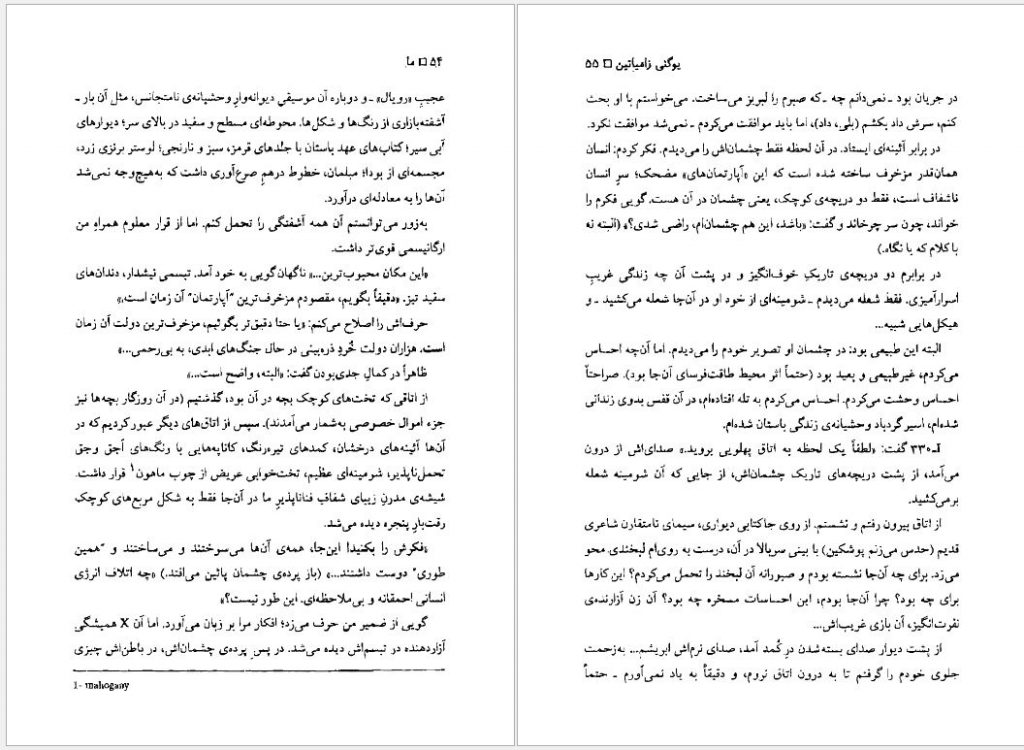 ۵۴ □ ما
عجیبِ «رویال» ـ و دوباره آن موسیقیِ دیوانه‌وارِ وحشیانه‌ی نامتجانس، مثل آن بار ـ
آشفته‌بازاری از رنگ‌ها و شکل‌ها. محوطه‌ای مسطح و سفید در بالای سر؛ دیوارهای
آبی سیر؛ کتاب‌های عهد باستان با جلدهای قرمز، سبز و نارنجی؛ لوستر برنزی زرد،
مجسمه‌ای از بودا؛ مبلمان، خطوط درهمِ صرع‌آوری داشت که به‌هیچ‌وجه نمی‌شد
آن‌ها را به معادله‌ای درآورد.
به‌زور می‌توانستم آن همه آشفتگی را تحمل کنم. اما از قرار معلوم همراهِ من
ارگانیسمی قوی‌تر داشت.
«این مکان محبوب‌ترین...» ناگهان گویی به خود آمد. تبسمی نیشدار، دندان‌های
سفید تیز. «دقیقاً بگویم، مقصودم مزخرف‌ترین "آپارتمان" آن زمان است.»
حرف‌اش را اصلاح می‌کنم: «یا حتا دقیق‌تر بگوئیم، مزخرف‌ترین دولت آن زمان
است. هزاران دولت خُردِ ذره‌بینی در حال جنگ‌های ابدی، به بی‌رحمی...»
ظاهراً در کمالِ جدی‌بودن گفت: «البته، واضح است...»
از اتاقی که تخت‌های کوچک بچه در آن بود، گذشتیم (در آن روزگار بچه‌ها نیز
جزء اموال خصوصی به‌شمار می‌آمدند). سپس از اتاق‌های دیگر عبور کردیم که در
آن‌ها آئینه‌های درخشان، کمدهای تیره‌رنگ، کاناپه‌هایی با رنگ‌های اَجق وجق
تحمل‌ناپذیر، شومینه‌ای عظیم، تخت‌خوابی عریض از چوب ماهون۱ قرار داشت.
شیشه‌ی مدرنِ زیبای شفافِ فناناپذیرِ ما در آن‌جا فقط به شکل مربع‌های کوچک
رقت‌بارِ پنجره دیده می‌شد.
«فکرش را بکنید! این‌جا، همه‌ی آن‌ها می‌سوختند و می‌ساختند و "همین
طوری" دوست داشتند...» (باز پرده‌ی چشمان پائین می‌افتد.) «چه اتلاف انرژی
انسانی احمقانه و بی‌ملاحظه‌ای. این طور نیست؟»
گویی از ضمیر من حرف می‌زد؛ افکار مرا بر زبان می‌آورد. اما آن X همیشگی
آزاردهنده در تبسم‌اش دیده می‌شد. در پسِ پرده‌ی چشمان‌اش، در باطن‌اش چیزی
1- mahogany
یوگنی زامیاتین □ ۵۵
در جریان بود ـ نمی‌دانم چه ـ که صبرم را لبریز می‌ساخت. می‌خواستم با او بحث
کنم، سرش داد بکشم (بلی، داد)، اما باید موافقت می‌کردم ـ نمی‌شد موافقت نکرد.
در برابر آئینه‌ای ایستاد. در آن لحظه فقط چشمان‌اش را می‌دیدم. فکر کردم: انسان
همان‌قدر مزخرف ساخته شده است که این «آپارتمان‌های» مضحک؛ سرِ انسان
ناشفاف است، فقط دو دریچه‌ی کوچک، یعنی چشمان در آن هست. گویی فکرم را
خواند، چون سر چرخاند و گفت: «باشد، این هم چشمان‌ام، راضی شدی؟» (البته نه
با کلام که با نگاه.)
در برابرم دو دریچه‌ی تاریکِ خوف‌انگیز و در پشت آن چه زندگی غریبِ
اسرارآمیزی. فقط شعله می‌دیدم ـ شومینه‌ای از خود او در آن‌جا شعله می‌کشید ـ و
هیکل‌هایی شبیه...
البته این طبیعی بود: در چشمان او تصویر خودم را می‌دیدم. اما آن‌چه احساس
می‌کردم، غیرطبیعی و بعید بود (حتماً اثر محیط طاقت‌فرسای آن‌جا بود). صراحتاً
احساس وحشت می‌کردم. احساس می‌کردم به تله افتاده‌ام، در آن قفس بدوی زندانی
شده‌ام، اسیر گردباد وحشیانه‌ی زندگی باستان شده‌ام.
آی‌ـ۳۳۰ گفت: «لطفاً یک لحظه به اتاق پهلویی بروید.» صدای‌اش از درون
می‌آمد، از پشت دریچه‌های تاریک چشمان‌اش، از جایی که آن شومینه شعله
برمی‌کشید.
از اتاق بیرون رفتم و نشستم. از روی جاکتابی دیواری، سیمای نامتقارن شاعری
قدیم (حدس می‌زنم پوشکین) با بینی سربالا در آن، درست به روی‌ام لبخندی محو
می‌زد. برای چه آن‌جا نشسته بودم و صبورانه آن لبخند را تحمل می‌کردم؟ این کارها
برای چه بود؟ چرا آن‌جا بودم، این احساسات مسخره چه بود؟ آن زن آزارنده‌ی
نفرت‌انگیز، آن بازی غریب‌اش...
از پشت دیوار صدای بسته‌شدن درِ کُمد آمد، صدای نرم‌اش ابریشم... به‌زحمت
جلوی خودم را گرفتم تا به درون اتاق نروم، و دقیقاً به یاد نمی‌آورم ـ حتماً